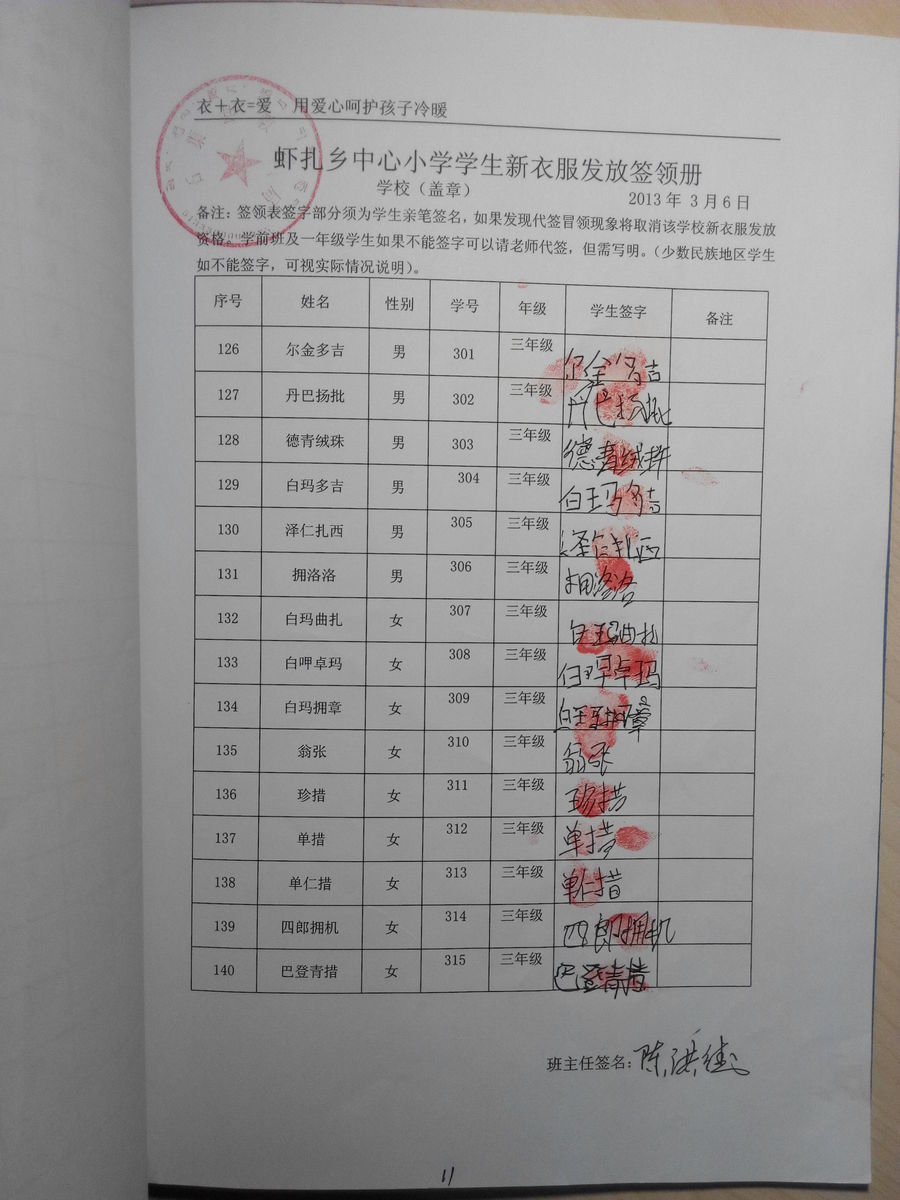 衣+衣=爱 用爱心呵护孩子冷暖
虾扎乡中心小学学生新衣服发放签领册
学校(盖章) 2013年3月6日
备注:签领表签字部分须为学生亲笔签名,如果发现代签冒领现象将取消该学校新衣服发放
资格。学前班及一年级学生如果不能签字可以请老师代签,但需写明。(少数民族地区学生
如不能签字,可视实际情况说明)。
序号 姓名 性别 学号 年级 学生签字 备注
126 尔金多吉 男 301 三年级 尔金多吉
127 丹巴扬批 男 302 三年级 丹巴扬批
128 德青绒珠 男 303 三年级 德青绒珠
129 白玛多吉 男 304 三年级 白玛多吉
130 泽仁扎西 男 305 三年级 泽仁扎西
131 拥洛洛 男 306 三年级 拥洛洛
132 白玛曲扎 女 307 三年级 白玛曲扎
133 白呷卓玛 女 308 三年级 白呷卓玛
134 白玛拥章 女 309 三年级 白玛拥章
135 翁张 女 310 三年级 翁张
136 珍措 女 311 三年级 珍措
137 单措 女 312 三年级 单措
138 单仁措 女 313 三年级 单仁措
139 四郎拥机 女 314 三年级 四郎拥机
140 巴登青措 女 315 三年级 巴登青措
班主任签名:陈洪
11